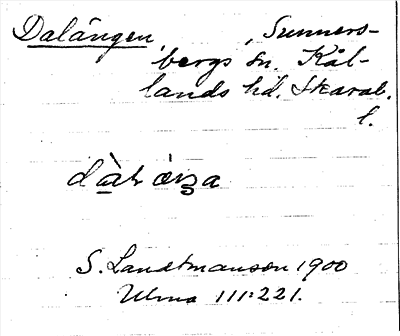 Dalängen, Sunners-
bergs sn. Kål-
lands hd. Skarab.
l.
S. Landtmanson 1900
Ulma 111:221.